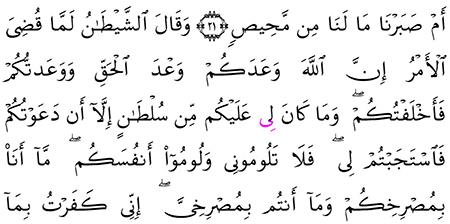 أَمۡ صَبَرۡنَا مَا لَنَا مِن مَّحِيصٖ ﴿٢١﴾ وَقَالَ ٱلشَّيۡطَٰنُ لَمَّا قُضِيَ
ٱلۡأَمۡرُ إِنَّ ٱللَّهَ وَعَدَكُمۡ وَعۡدَ ٱلۡحَقِّ وَوَعَدتُّكُمۡ
فَأَخۡلَفۡتُكُمۡۖ وَمَا كَانَ لِيَ عَلَيۡكُم مِّن سُلۡطَٰنٍ إِلَّآ أَن دَعَوۡتُكُمۡ
فَٱسۡتَجَبۡتُمۡ لِيۖ فَلَا تَلُومُونِي وَلُومُوٓاْ أَنفُسَكُمۖ مَّآ أَنَا۠
بِمُصۡرِخِكُمۡ وَمَآ أَنتُم بِمُصۡرِخِيَّ إِنِّي كَفَرۡتُ بِمَآ